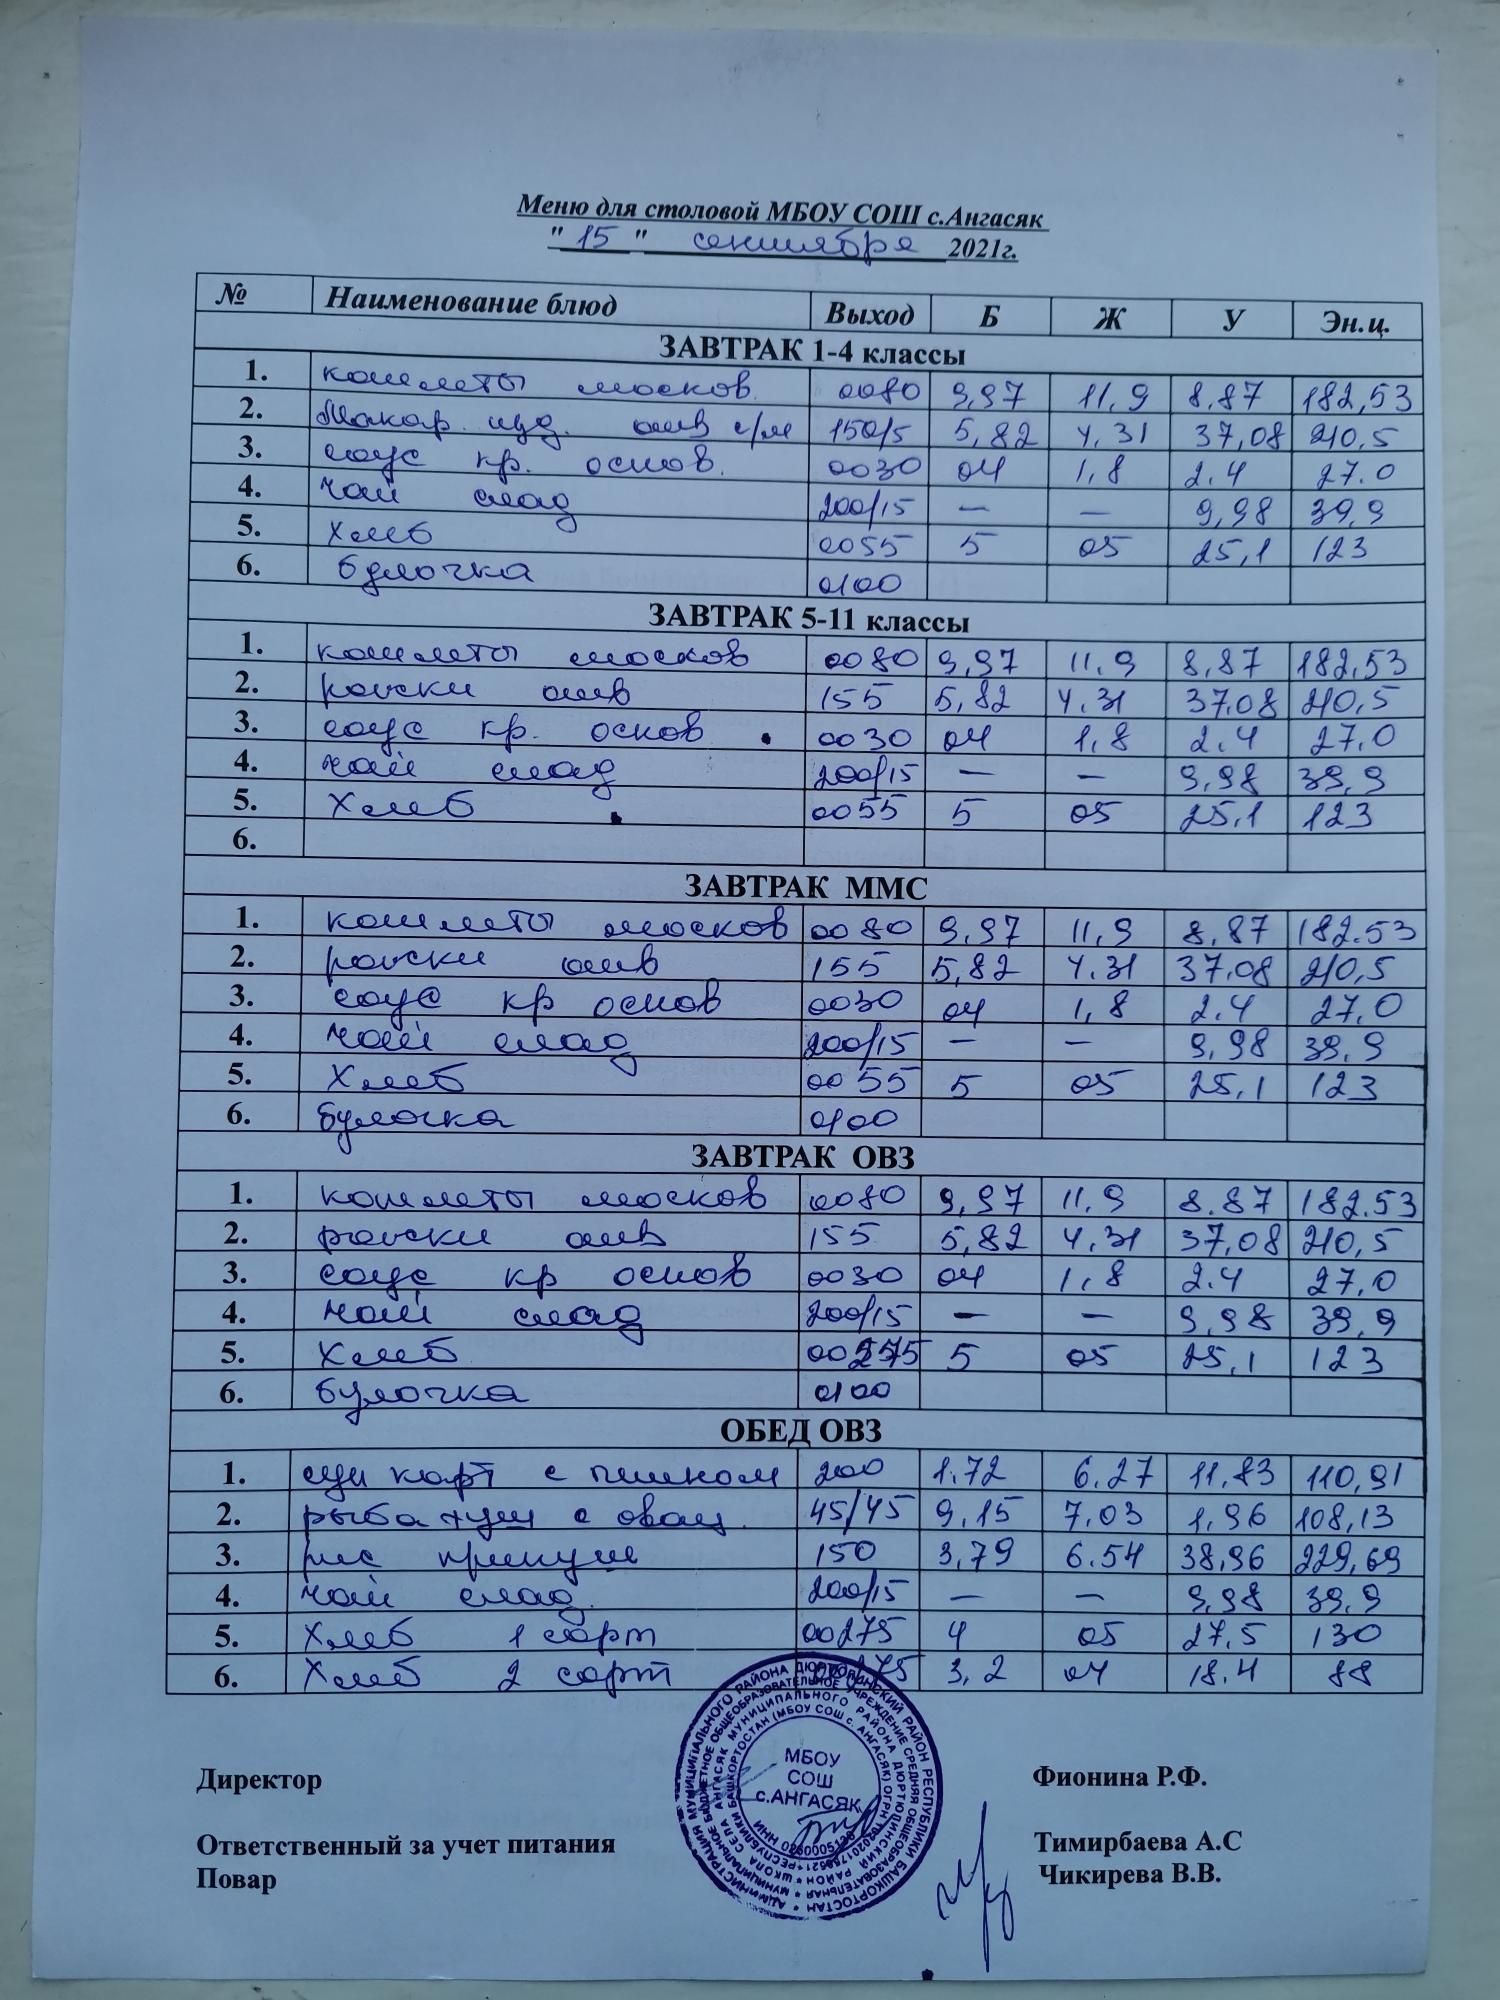 Меню для столовой МБОУ СОШ с.Ангасяк
" 15 " сентября 2021г.
№ Наименование блюд Выход Б Ж У Эн.ц.
ЗАВТРАК 1-4 классы
1. котлеты москов. 0080 9,97 11,9 8,87 182,53
2. Макар. изд. отв с/м 150/5 5,82 4,31 37,08 210,5
3. соус кр. основ. 0030 04 1,8 2.4 27.0
4. чай слад 200/15 — — 9,98 39,9
5. Хлеб 0055 5 05 25,1 123
6. булочка 0100
ЗАВТРАК 5-11 классы
1. котлеты москов 0080 9,97 11,9 8,87 182,53
2. рожки отв 155 5,82 4.31 37,08 210,5
3. соус кр. основ 0030 04 1,8 2.4 27,0
4. чай слад 200/15 — — 9,98 39,9
5. Хлеб 0055 5 05 25,1 123
6.
ЗАВТРАК ММС
1. котлеты москов 0080 9,97 11,9 8,87 182.53
2. рожки отв 155 5,82 4.31 37,08 210,5
3. соус кр основ 0030 04 1,8 2.4 27,0
4. чай слад 200/15 — — 9,98 39,9
5. Хлеб 0055 5 05 25,1 123
6. булочка 0100
ЗАВТРАК ОВЗ
1. котлеты москов 0080 9,97 11,9 8.87 182.53
2. рожки отв 155 5,82 4,31 37,08 210,5
3. соус кр основ 0030 04 1,8 2.4 27,0
4. чай слад 200/15 — — 9,98 39,9
5. Хлеб 00275 5 05 25,1 123
6. булочка 0100
ОБЕД ОВЗ
1. суп карт с пшеном 200 1.72 6.27 11,83 110,91
2. рыба туш с овощ. 45/45 9,15 7,03 1,96 108,13
3. рис припущ 150 3,79 6.54 38,96 229,69
4. чай слад. 200/15 — — 9,98 39,9
5. Хлеб 1 сорт 00275 4 05 27,5 130
6. Хлеб 2 сорт 00275 3,2 04 18.4 88
МБОУ
СОШ
с.АНГАСЯК
Директор Фионина Р.Ф.
Ответственный за учет питания Тимирбаева А.С
Повар Чикирева В.В.